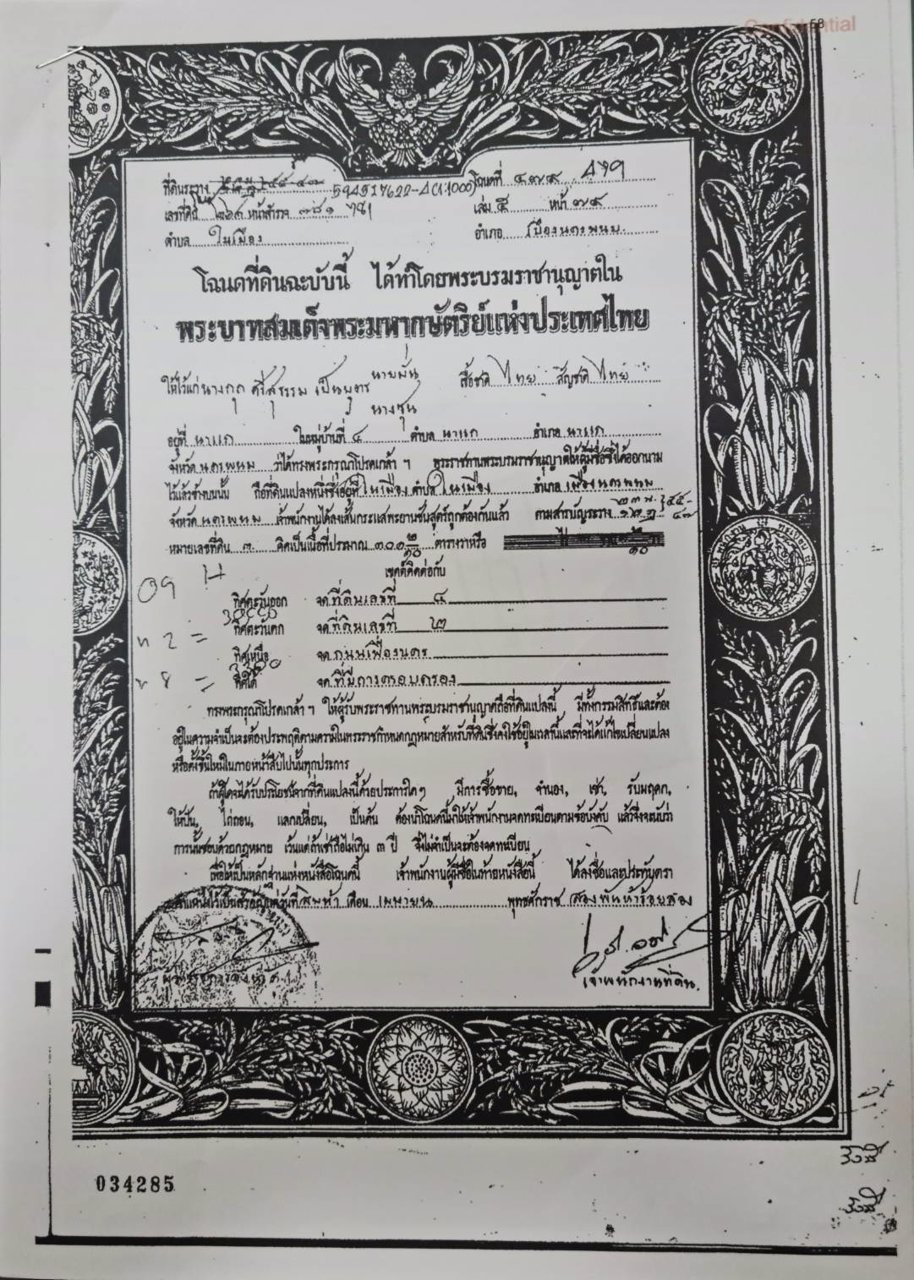 Confidential
58
ที่ดินระวาง 5945 I 7622-4 (1:1000) โฉนดที่ ๔๗๙
เลขที่ดิน หน้าสำรวจ ๓๘๑ เล่ม ๕ หน้า ๗๙
ตำบล ในเมือง อำเภอ เมืองนครพนม
โฉนดที่ดินฉะบับนี้ ได้ทำโดยพระบรมราชานุญาตใน
พระบาทสมเด็จพระมหากษัตริย์แห่งประเทศไทย
ให้ไว้แก่ นางกุ ศรีสุธรรม เป็นบุตร นายมั่น เชื้อชาติ ไทย สัญชาติ ไทย
นางชุน
อยู่ที่ นาแก ในหมู่บ้านที่ ๔ ตำบล นาแก อำเภอ นาแก
จังหวัด นครพนม ว่าได้ทรงพระกรุณาโปรดเกล้าฯ พระราชทานพระบรมราชานุญาตให้ผู้มีชื่อซึ่งได้ออกนาม
ไว้แล้วข้างบนนั้น ถือที่ดินแปลงหนึ่งซึ่งอยู่ที่ ในเมือง ตำบล ในเมือง อำเภอ เมืองนครพนม
จังหวัด นครพนม เจ้าพนักงานได้ลงเส้นกระแสพะยานชันสูตร์ถูกต้องกันแล้ว ตามสารบัญระวาง
หมายเลขที่ดิน ๓ คิดเป็นเนื้อที่ประมาณ ๓๐๐ ๒/๑๐ ตารางวาหรือ
เขตต์ติดต่อกับ
ทิศตะวันออก จด ที่ดินเลขที่ ๔
ทิศตะวันตก จด ที่ดินเลขที่ ๒
ทิศเหนือ จด ถนนเฟื่องนคร
ทิศใต้ จด ที่มีการครอบครอง
ทรงพระกรุณาโปรดเกล้าฯ ให้ผู้รับพระราชทานพระบรมราชานุญาตถือที่ดินแปลงนี้ มีทั้งกรรมสิทธิ์และต้อง
อยู่ในความจำเป็นจะต้องประพฤติตามความในพระราชกำหนดกฎหมายสำหรับที่ดินซึ่งคงใช้อยู่ในเวลานี้และที่จะได้แก้ไขเปลี่ยนแปลง
หรือตั้งขึ้นใหม่ในภายหน้าสืบไปนั้นทุกประการ
ถ้าผู้ใดจะได้รับประโยชน์จากที่ดินแปลงนี้ด้วยประการใดๆ มีการซื้อขาย, จำนอง, เช่า, รับมฤดก,
ให้ปัน, ไถ่ถอน, แลกเปลี่ยน, เป็นต้น ต้องนำโฉนดนี้มาให้เจ้าพนักงานจดทะเบียนตามข้อบังคับ แล้วจึงจะนับว่า
การนั้นชอบด้วยกฎหมาย เว้นแต่ถ้าเช่าถือไม่เกิน ๓ ปี จึงไม่จำเป็นจะต้องจดทะเบียน
เพื่อให้เป็นหลักฐานแห่งหนังสือโฉนดนี้ เจ้าพนักงานผู้มีชื่อในท้ายหนังสือนี้ ได้ลงชื่อและประทับตรา
ตำแหน่งไว้เป็นสำคัญแต่วันที่ สิบห้า เดือน เมษายน พุทธศักราช สองพันห้าร้อยสอง
เจ้าพนักงานที่ดิน
034285